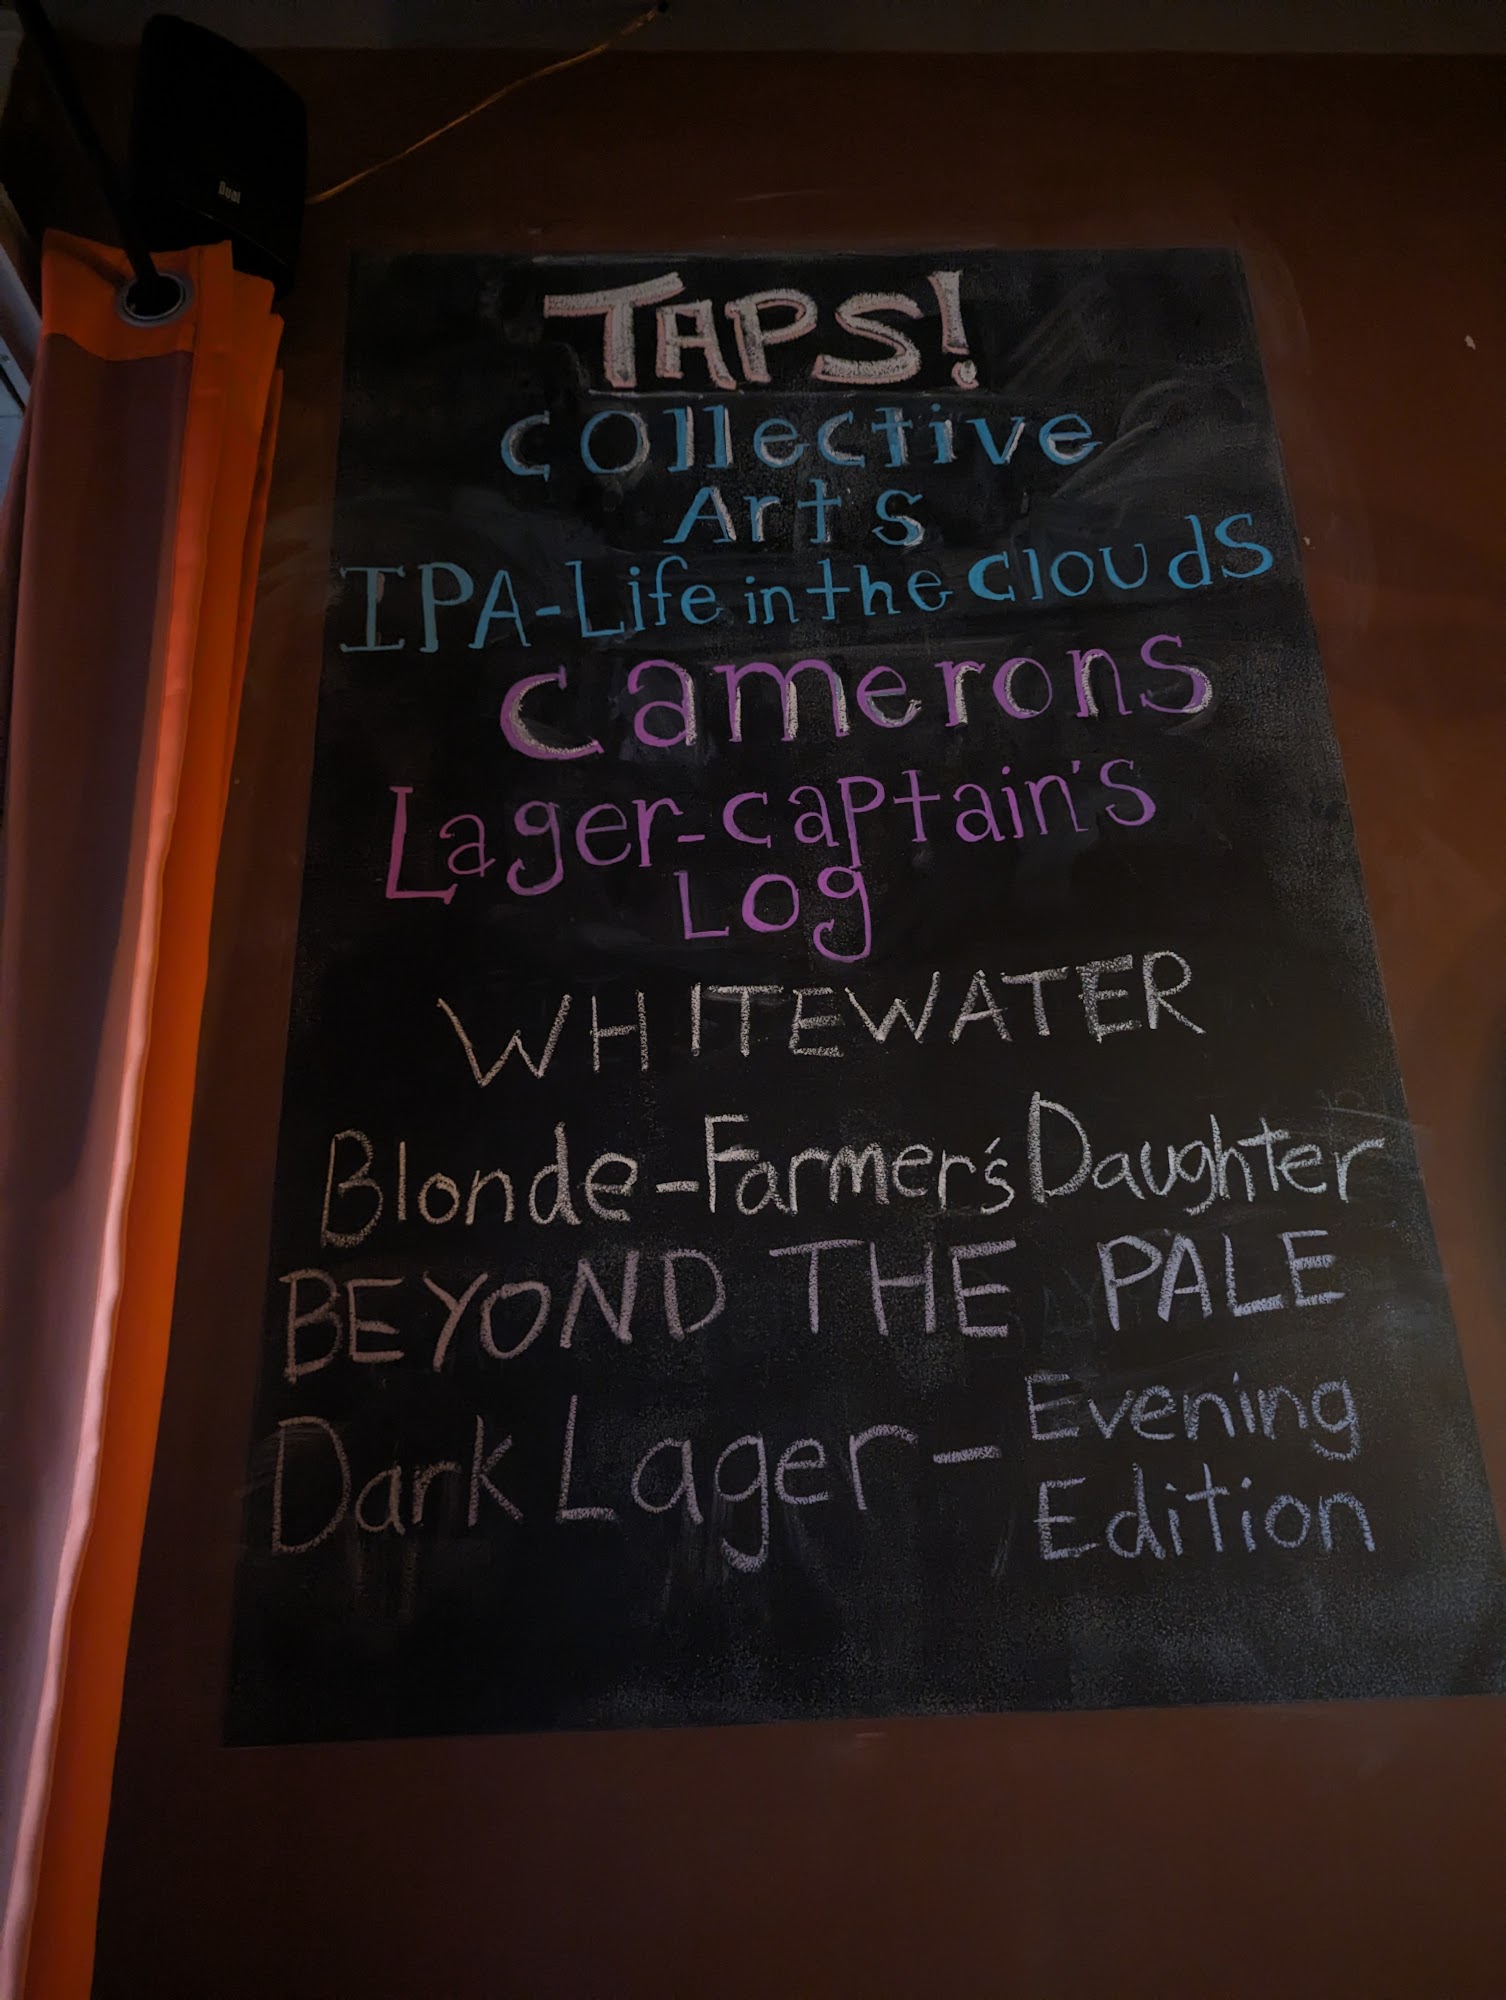 Dual
TAPS!
Collective
Arts
IPA-Life in the Clouds
Camerons
Lager-Captain's
Log
WHITEWATER
Blonde-Farmer's Daughter
BEYOND THE PALE
Dark Lager-Evening
Edition